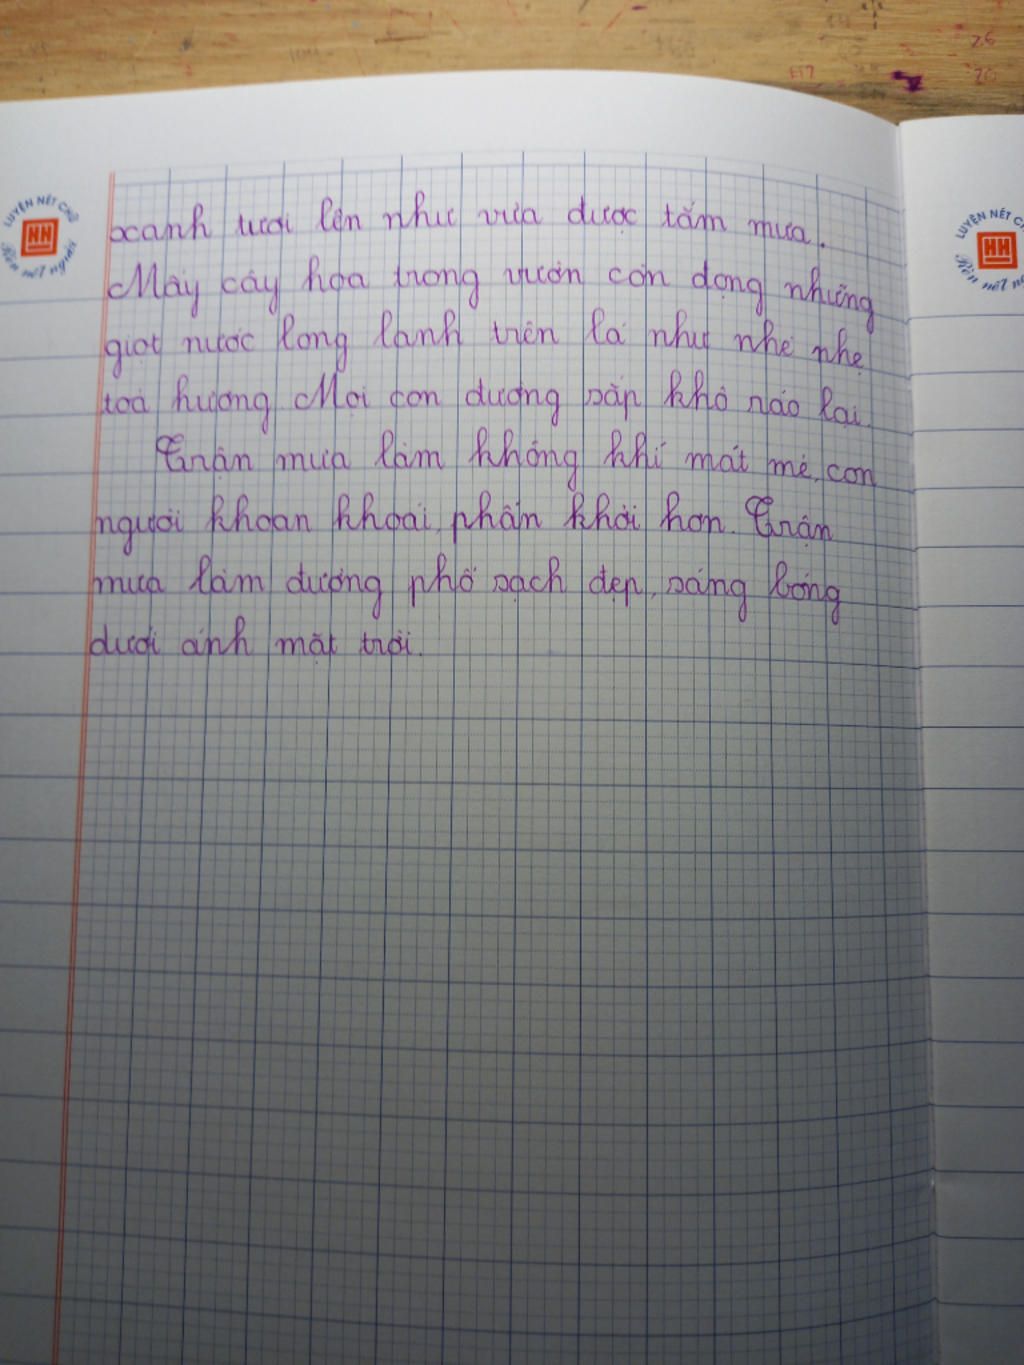 xanh tươi lên như vừa được tắm mưa.
Mấy cây hoa trong vườn còn đọng những
giọt nước long lanh trên lá như nhè nhẹ
toả hương. Mọi con đường sắp khô ráo lại.
Trận mưa làm không khí mát mẻ, con
người khoan khoái, phấn khởi hơn. Trận
mưa làm đường phố sạch đẹp, sáng bóng
dưới ánh mặt trời.
LUYỆN NÉT CHỮ
HH
Rèn nết người
LUYỆN NÉT
HH
Rèn nết